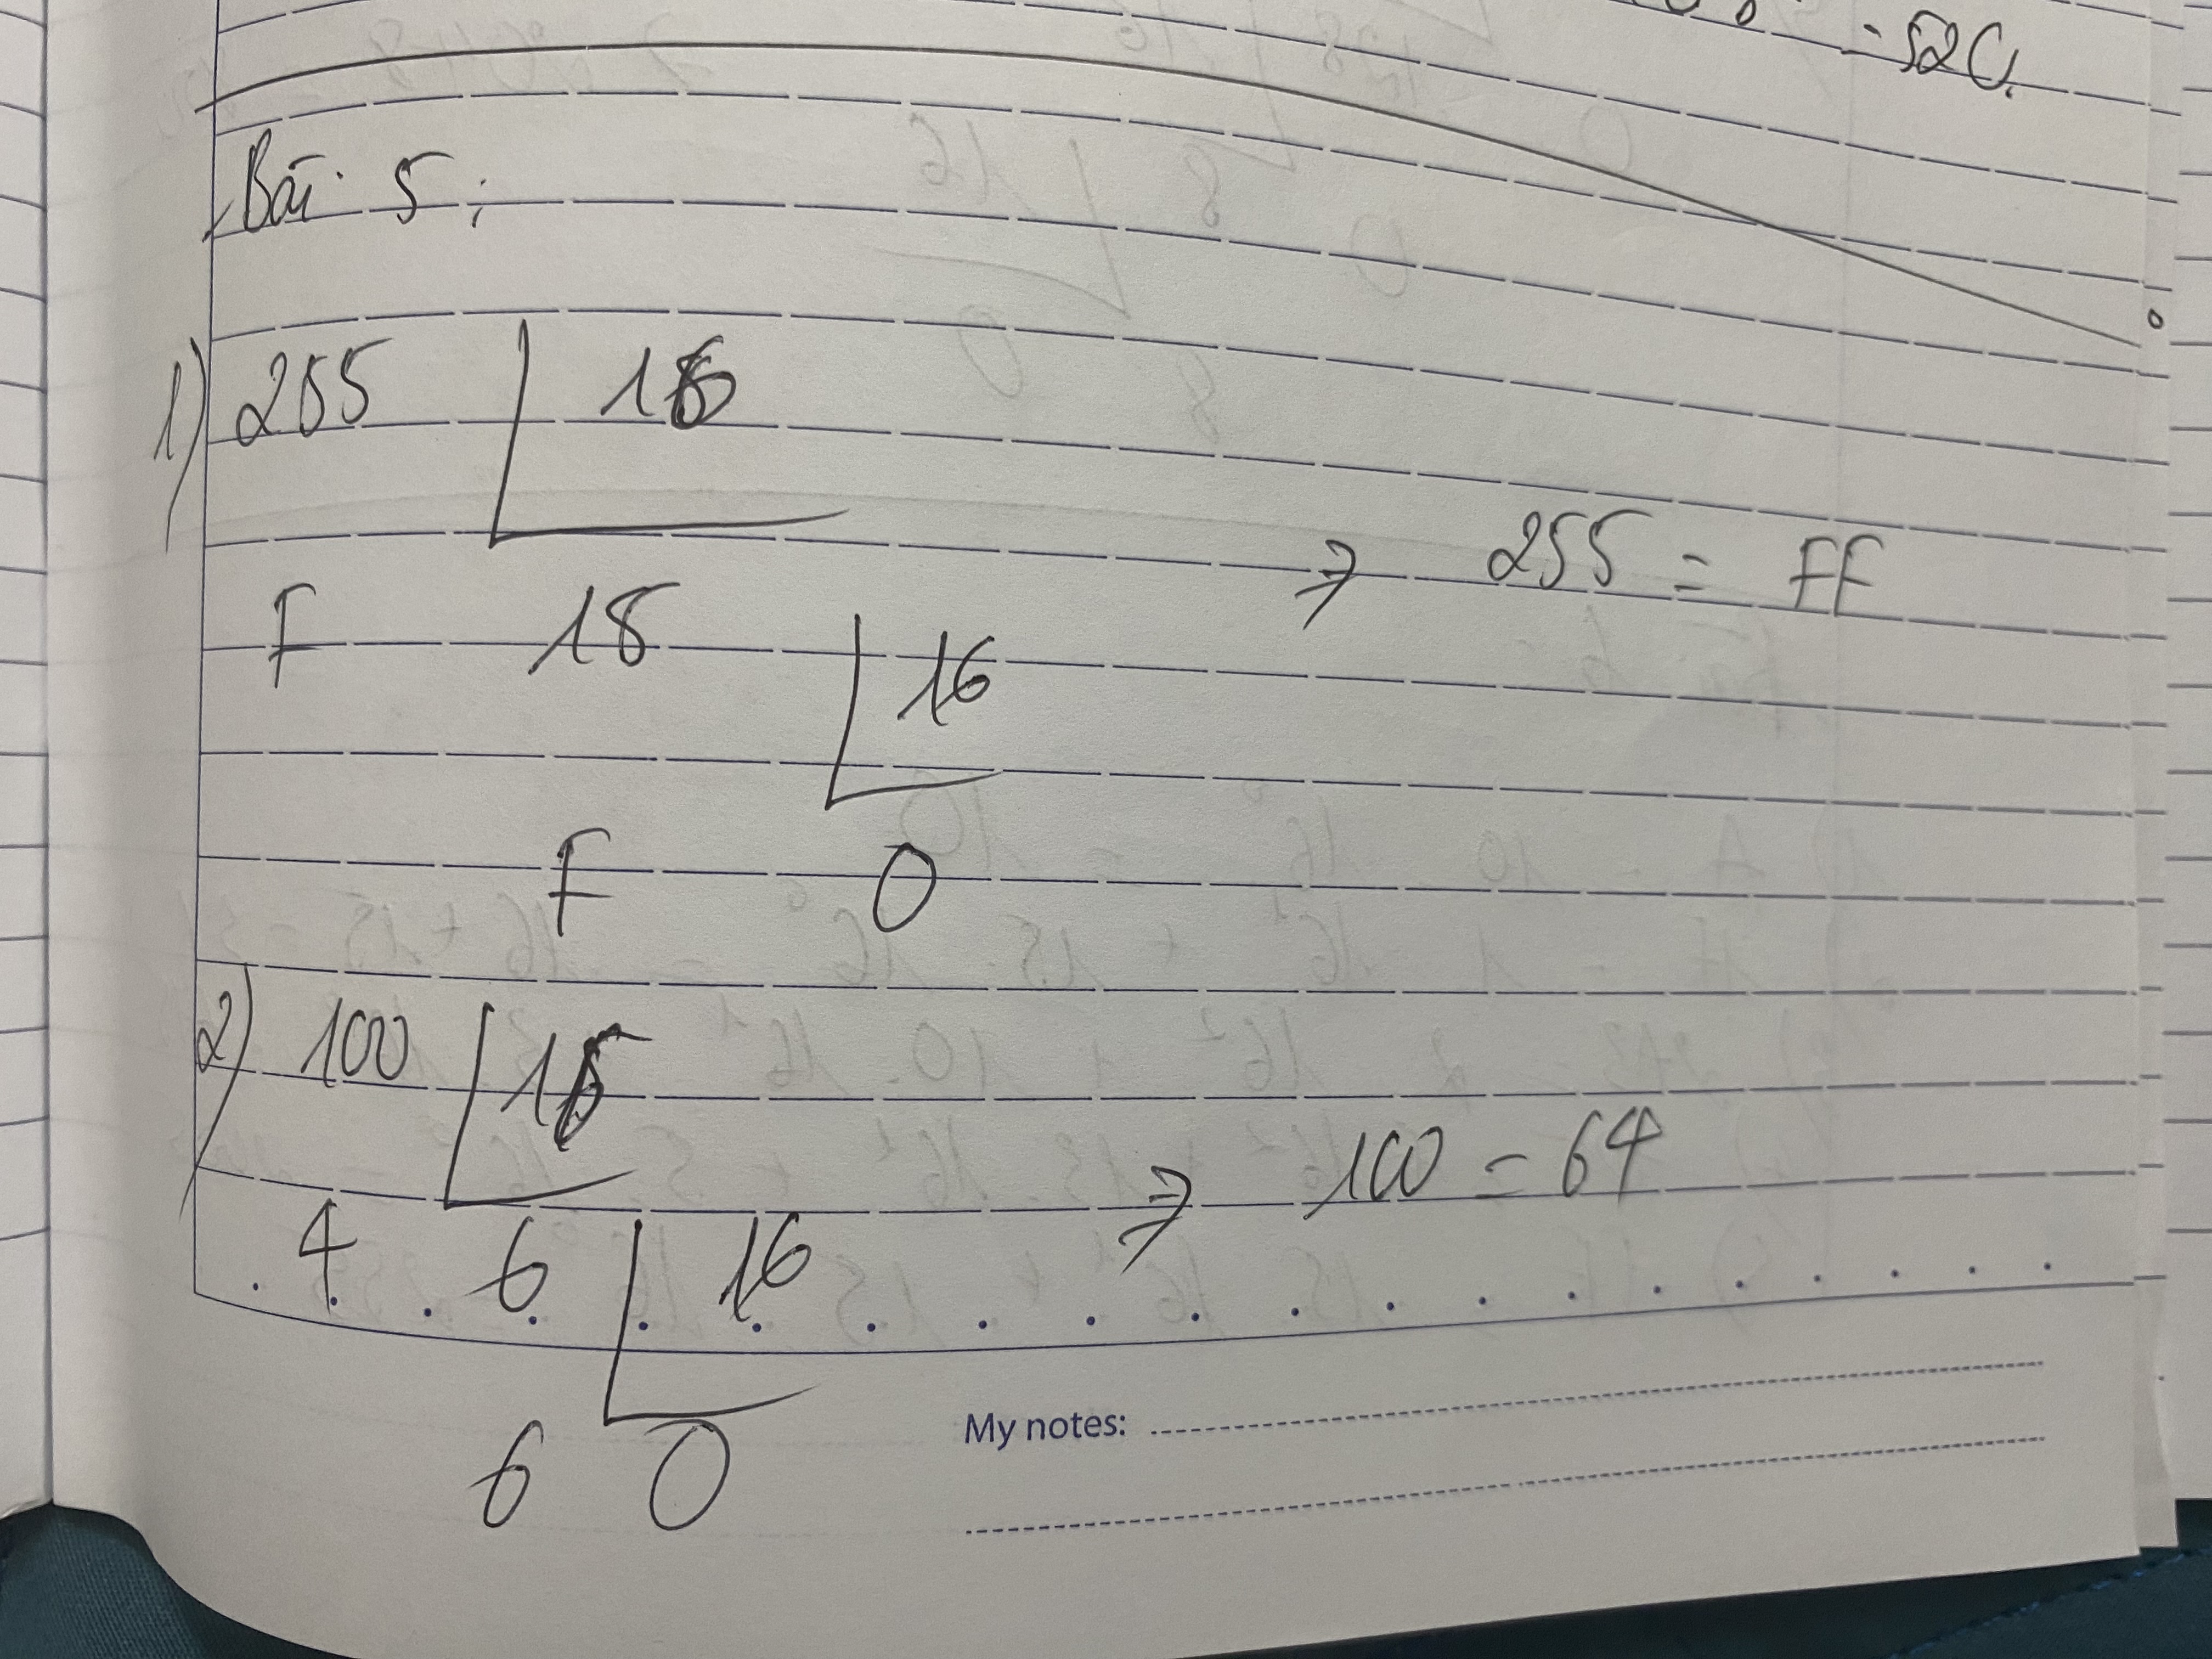 = 52C,
Bài 5:
1) 255 16
F 15 16
F 0
→ 255 = FF
2) 100 16
4 6 16
6 0
→ 100 = 64
My notes: